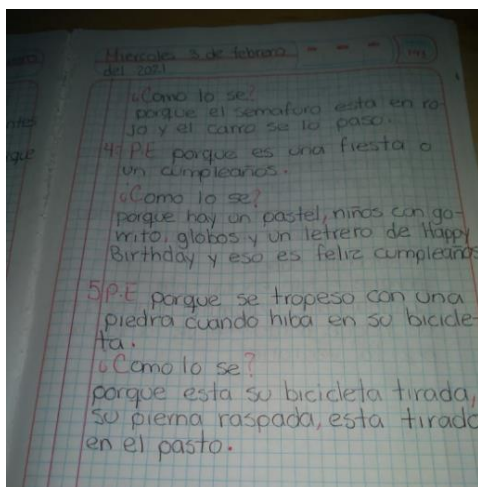 Miercoles 3 de febrero
del 2021
¿Como lo se?
porque el semafuro esta en ro-
jo y el carro se lo paso.
4: P.E porque es una fiesta o
un cumpleaños.
¿Como lo se?
porque hay un pastel, niños con go-
rrito, globos y un letrero de Happy
Birthday y eso es feliz cumpleaños
5 P.E porque se tropeso con una
piedra cuando hiba en su bicicle-
ta.
¿Como lo se?
porque esta su bicicleta tirada,
su pierna raspada, esta tirado
en el pasto.